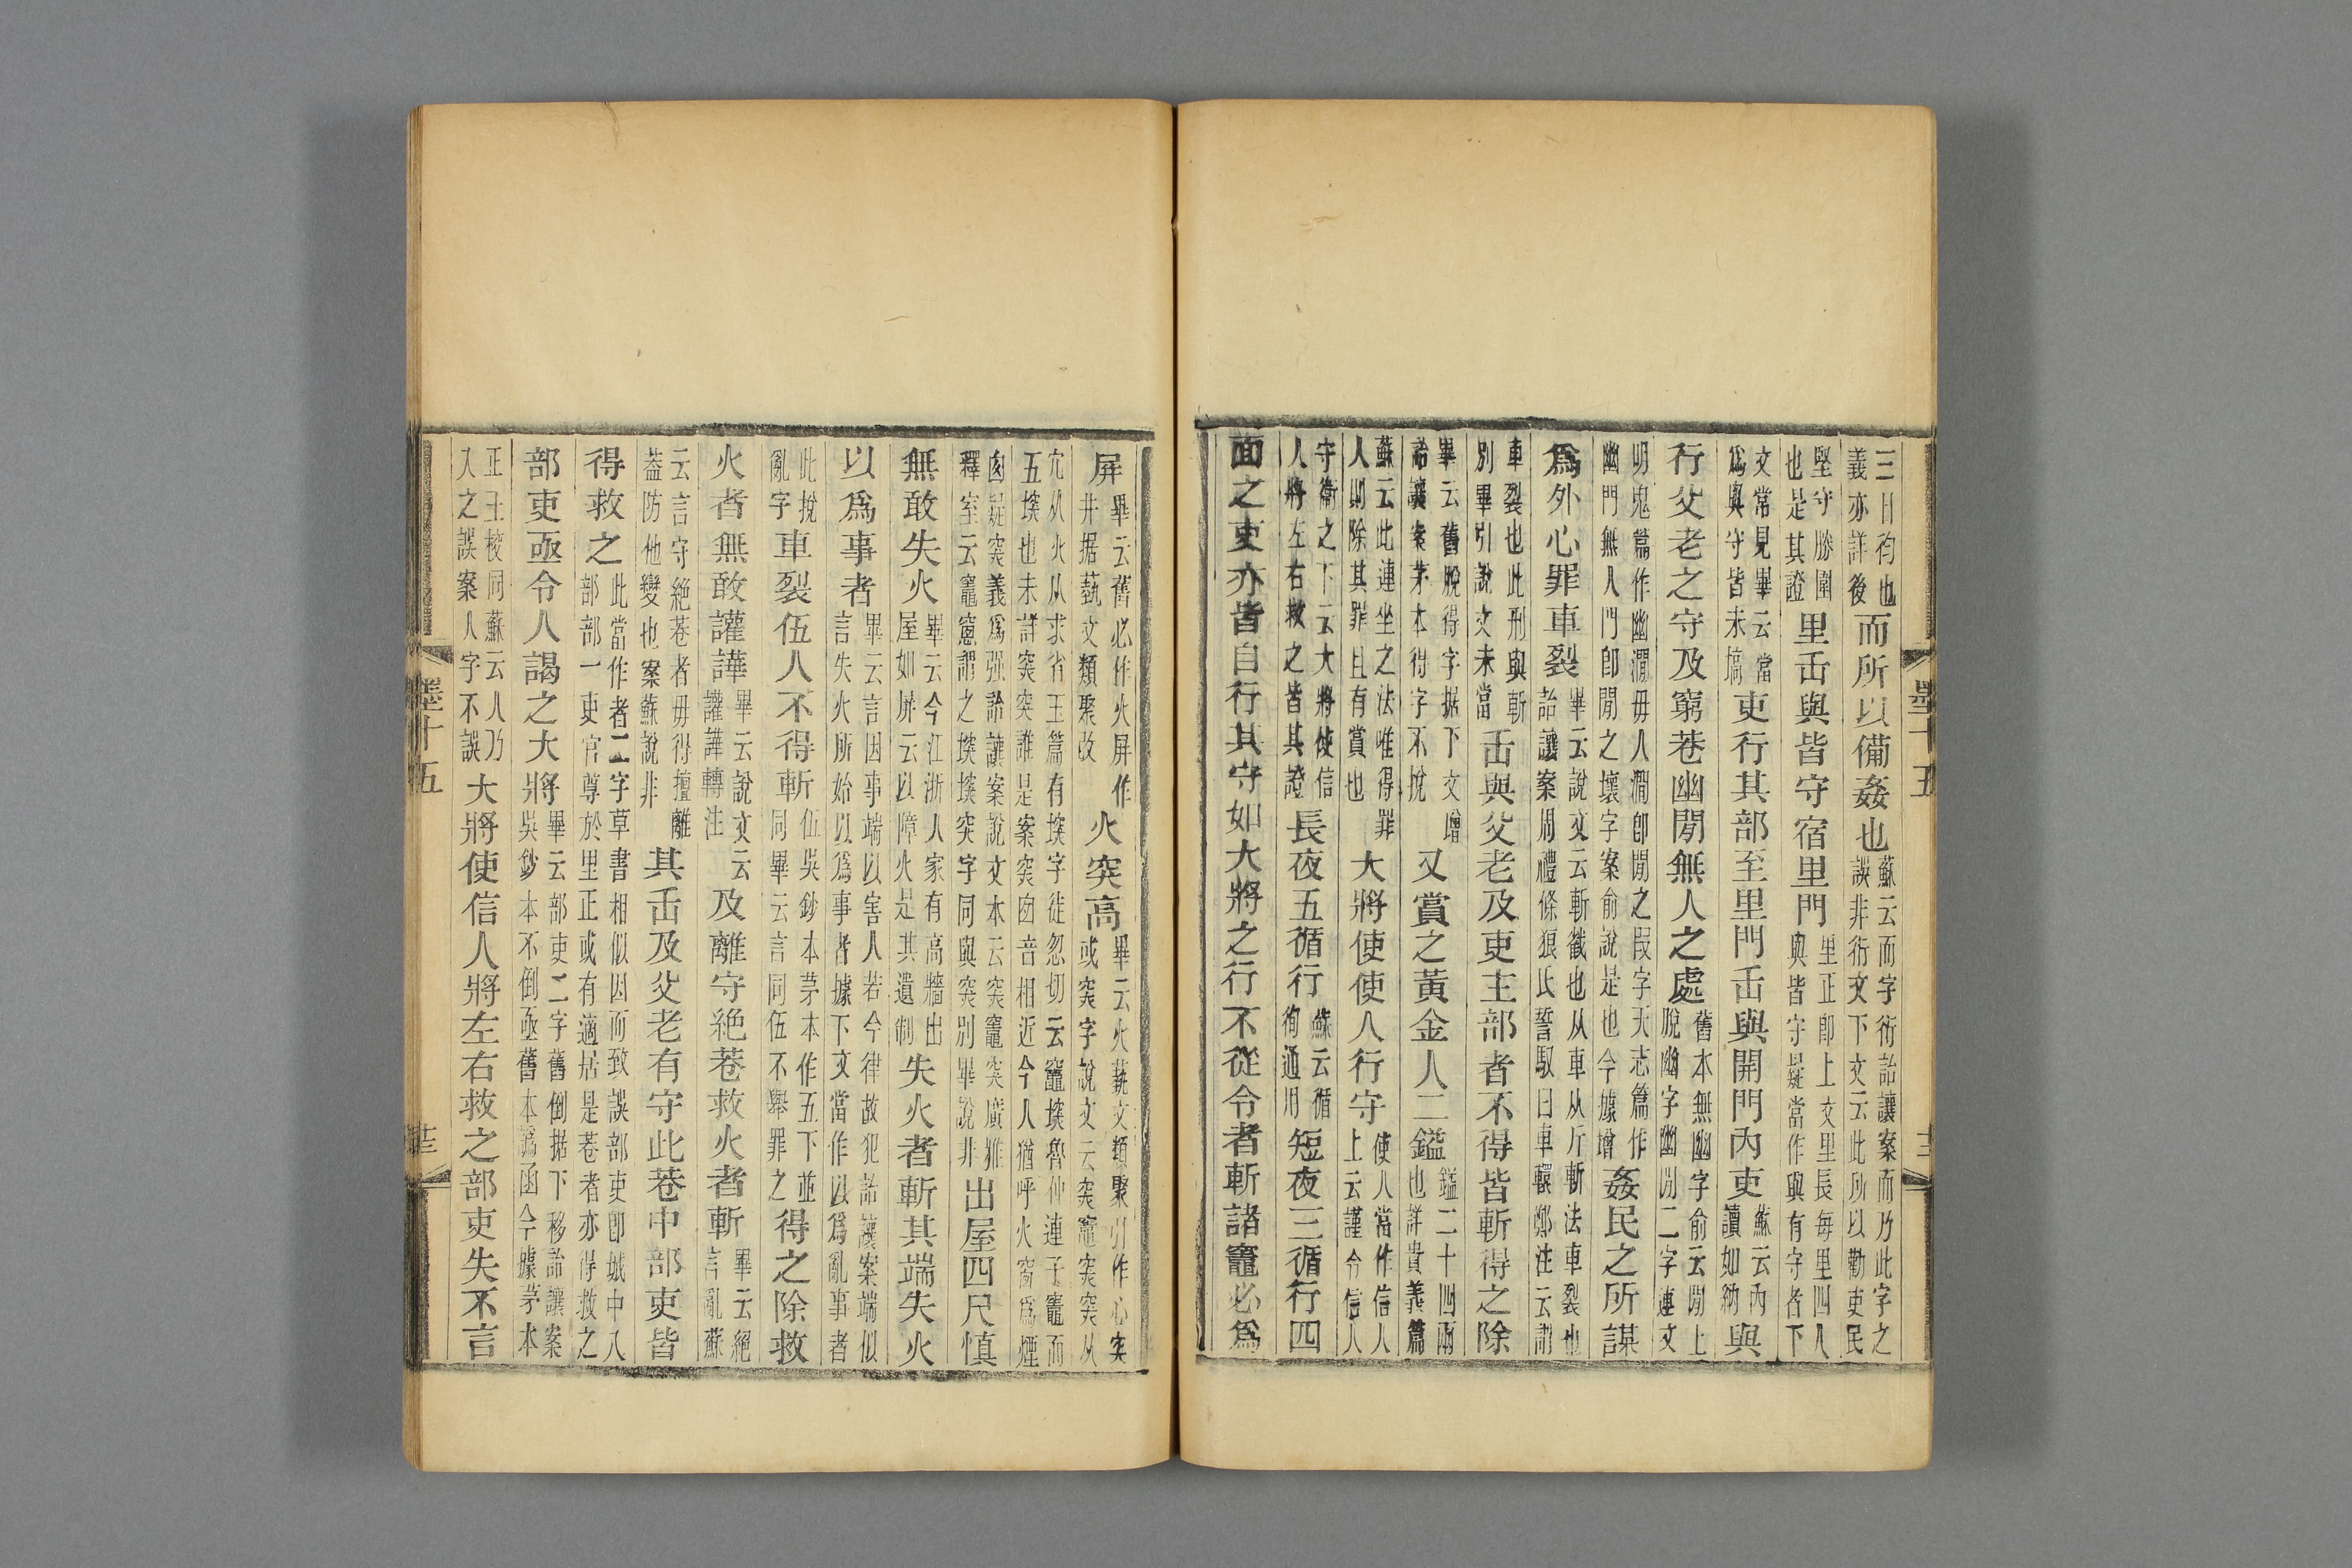 三日徇也義亦詳後而所以備姦也蘇云而字術詒讓案而乃此字之誤非衍文下文云此所以勸吏民
堅守勝圍也是其證里𠱷與皆守宿里門里正卽上文里長每里四人與皆守疑當作與有守者下
文常見畢云當爲與守皆未塙吏行其部至里門𠱷與開門內吏蘇云內讀如納與
行父老之守及窮巷幽閒無人之處舊本無幽字俞云閒上脫幽字幽閒二字連文
明鬼篇作幽澗毋人澗卽閒之叚字天志篇作幽門無人門卽閒之壞字案俞說是也今據增姦民之所謀
爲外心罪車裂畢云說文云斬截也从車从斤斬法車裂也詒讓案周禮條狼氏誓馭曰車轘鄭注云謂
車裂也此刑與斬別畢引說文未當𠱷與父老及吏主部者不得皆斬得之除
畢云舊脫得字据下文增詒讓案茅本得字不挩又賞之黃金人二鎰鎰二十四兩也詳貴義篇
蘇云此連坐之法唯得罪人則除其罪且有賞也大將使使人行守使人當作信人上云謹令信人
守衞之下云大將使信人將左右救之皆其證長夜五循行蘇云循徇通用短夜三循行四
面之吏亦皆自行其守如大將之行不從令者斬諸竈必爲
墨十五
屏畢云舊必作火屏作井据藝文類聚改火突高畢云火藝文類聚引作心突或突字說文云突竈突突从
穴从火从求省玉篇有堗字徒忽切云竈堗魯仲連子竈而五堗也未詳突突誰是案突囱音相近今人猶呼火窗爲煙
囱疑突義爲强詒讓案說文本云突竈突廣雅釋室云竈窻謂之堗堗突字同與突別畢說非出屋四尺慎
無敢失火畢云今江浙人家有高牆出屋如屏云以障火是其遺制失火者斬其端失火
以爲事者畢云言因事端以害人若今律故犯詒讓案端似言失火所始以爲事者據下文當作以爲亂事者
此挩亂字車裂伍人不得斬伍吳鈔本茅本作五下並同畢云言同伍不舉罪之得之除救
火者無敢讙譁畢云說文云讙譁轉注及離守絶巷救火者斬畢云絕言亂蘇
云言守絶巷者毋得擅離葢防他變也案蘇說非其𠱷及父老有守此巷中部吏皆
得救之此當作者二字草書相似因而致誤部吏卽城中八部部一吏官尊於里正或有適居是巷者亦得救之
部吏亟令人謁之大將畢云部吏二字舊倒据下移詒讓案吳鈔本不倒亟舊本譌函今據茅本
正王校同蘇云人乃入之誤案人字不誤大將使信人將左右救之部吏失不言
墨十五